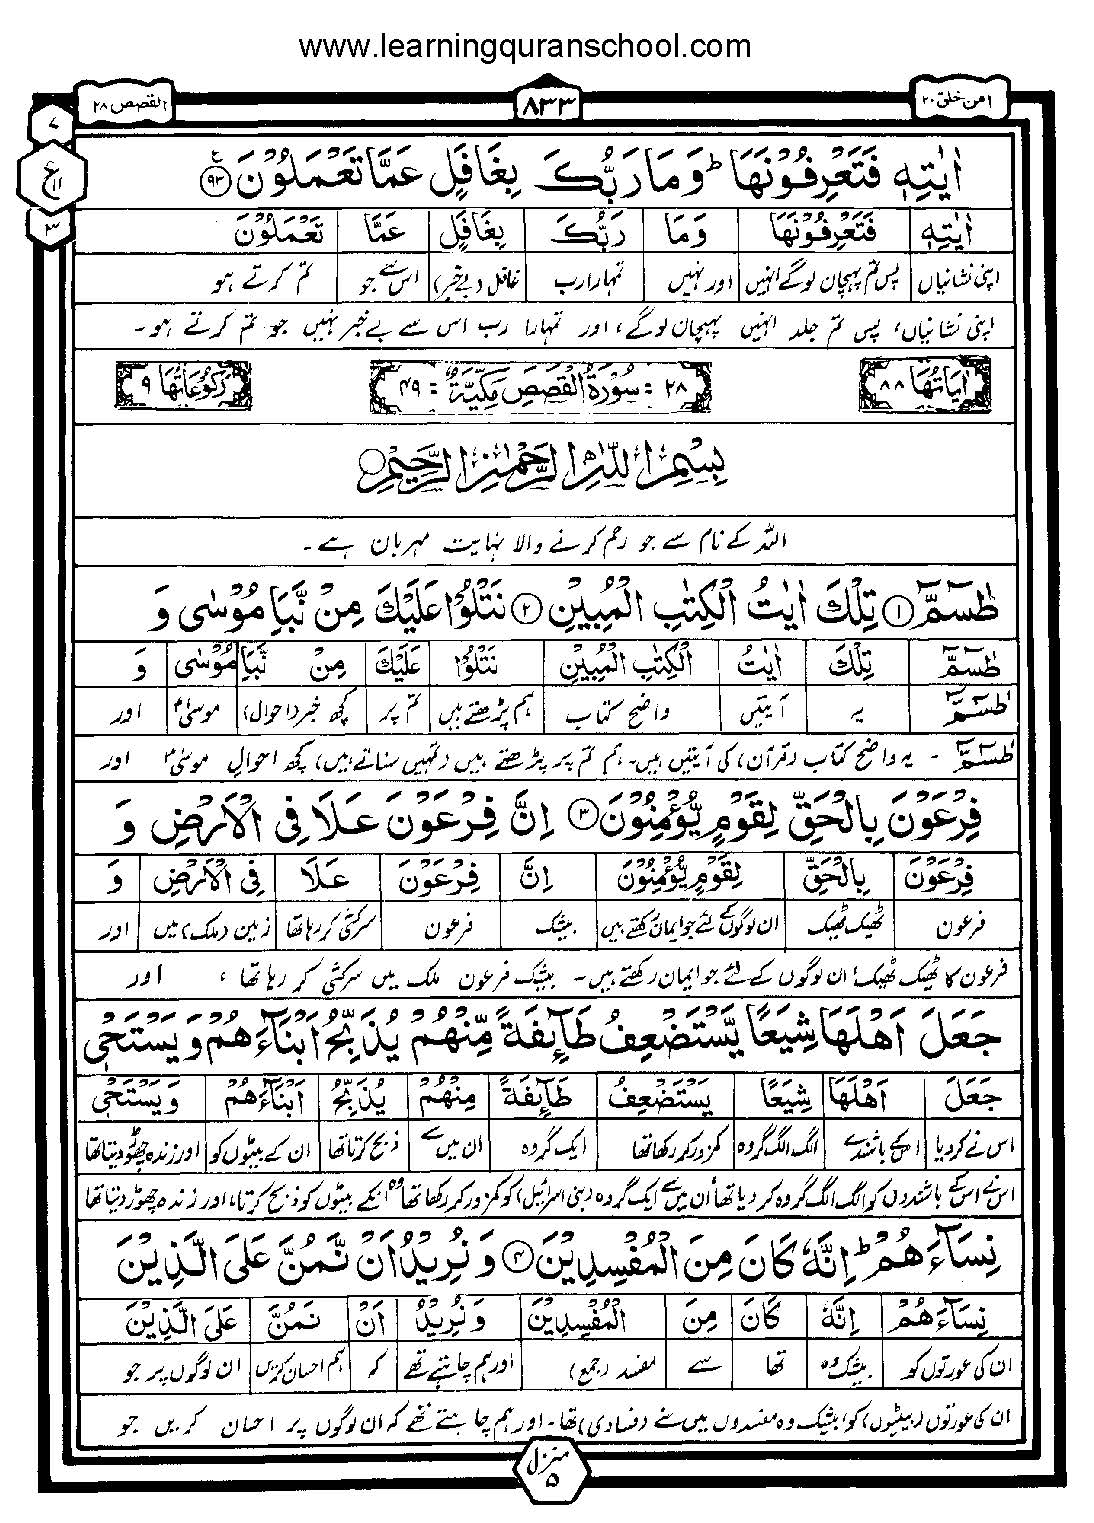 www.learningquranschool.com
امن خلق ۲۰
۸۳۳
القصص ۲۸
۷
ع
۱۱
۳
اٰیٰتِهٖ فَتَعْرِفُوْنَهَا ؕ وَمَا رَبُّكَ بِغَافِلٍ عَمَّا تَعْمَلُوْنَ ۹۳
اٰیٰتِهٖ فَتَعْرِفُوْنَهَا وَمَا رَبُّكَ بِغَافِلٍ عَمَّا تَعْمَلُوْنَ
اپنی نشانیاں پس تم پہچان لوگے انہیں اور نہیں تمہارا رب غافل (بے خبر) اس سے جو تم کرتے ہو
اپنی نشانیاں، پس تم جلد انہیں پہچان لوگے، اور تمہارا رب اس سے بے خبر نہیں جو تم کرتے ہو۔
اٰیَاتُهَا ۸۸
۲۸ = سُوْرَةُ الْقَصَصِ مَكِّیَّةٌ = ۴۹
رُكُوْعَاتُهَا ۹
بِسْمِ اللّٰهِ الرَّحْمٰنِ الرَّحِیْمِ
اللہ کے نام سے جو رحم کرنے والا نہایت مہربان ہے۔
طٰسٓمّٓ ۱ تِلْكَ اٰیٰتُ الْكِتٰبِ الْمُبِیْنِ ۲ نَتْلُوْا عَلَیْكَ مِنْ نَّبَاِ مُوْسٰی وَ
طٰسٓمّٓ تِلْكَ اٰیٰتُ الْكِتٰبِ الْمُبِیْنِ نَتْلُوْا عَلَیْكَ مِنْ نَّبَاِ مُوْسٰی وَ
طٰسٓمّٓ یہ آیتیں واضح کتاب ہم پڑھتے ہیں تم پر کچھ خبر (احوال) موسیٰؑ اور
طٰسٓمّٓ - یہ واضح کتاب (قرآن) کی آیتیں ہیں۔ ہم تم پر پڑھتے ہیں (تمہیں سناتے ہیں) کچھ احوال موسیٰؑ اور
فِرْعَوْنَ بِالْحَقِّ لِقَوْمٍ یُّؤْمِنُوْنَ ۳ اِنَّ فِرْعَوْنَ عَلَا فِی الْاَرْضِ وَ
فِرْعَوْنَ بِالْحَقِّ لِقَوْمٍ یُّؤْمِنُوْنَ اِنَّ فِرْعَوْنَ عَلَا فِی الْاَرْضِ وَ
فرعون ٹھیک ٹھیک ان لوگوں کے لئے جو ایمان رکھتے ہیں بیشک فرعون سرکشی کر رہا تھا زمین (ملک) میں اور
فرعون کا ٹھیک ٹھیک! ان لوگوں کے لئے جو ایمان رکھتے ہیں۔ بیشک فرعون ملک میں سرکشی کر رہا تھا، اور
جَعَلَ اَهْلَهَا شِیَعًا یَّسْتَضْعِفُ طَآىِٕفَةً مِّنْهُمْ یُذَبِّحُ اَبْنَآءَهُمْ وَیَسْتَحْیٖ
جَعَلَ اَهْلَهَا شِیَعًا یَسْتَضْعِفُ طَآىِٕفَةً مِنْهُمْ یُذَبِّحُ اَبْنَآءَهُمْ وَیَسْتَحْیٖ
اس نے کر دیا اسکے باشندے الگ الگ گروہ کمزور کر رکھا تھا ایک گروہ ان میں سے ذبح کرتا تھا ان کے بیٹوں کو اور زندہ چھوڑ دیتا تھا
اس نے اس کے باشندوں کو الگ الگ گروہ کر دیا تھا ان میں سے ایک گروہ (بنی اسرائیل) کو کمزور کر رکھا تھا وہ انکے بیٹوں کو ذبح کرتا، اور زندہ چھوڑ دیتا تھا
نِسَآءَهُمْ ؕ اِنَّهٗ كَانَ مِنَ الْمُفْسِدِیْنَ ۴ وَ نُرِیْدُ اَنْ نَّمُنَّ عَلَی الَّذِیْنَ
نِسَآءَهُمْ اِنَّهٗ كَانَ مِنَ الْمُفْسِدِیْنَ وَ نُرِیْدُ اَنْ نَمُنَّ عَلَی الَّذِیْنَ
ان کی عورتوں کو بیشک وہ تھا سے مفسد (جمع) اور ہم چاہتے تھے کہ ہم احسان کریں ان لوگوں پر جو
ان کی عورتوں (بیٹیوں) کو! بیشک وہ مفسدوں میں سے (فسادی) تھا۔ اور ہم چاہتے تھے کہ ان لوگوں پر احسان کریں جو
منزل
۵